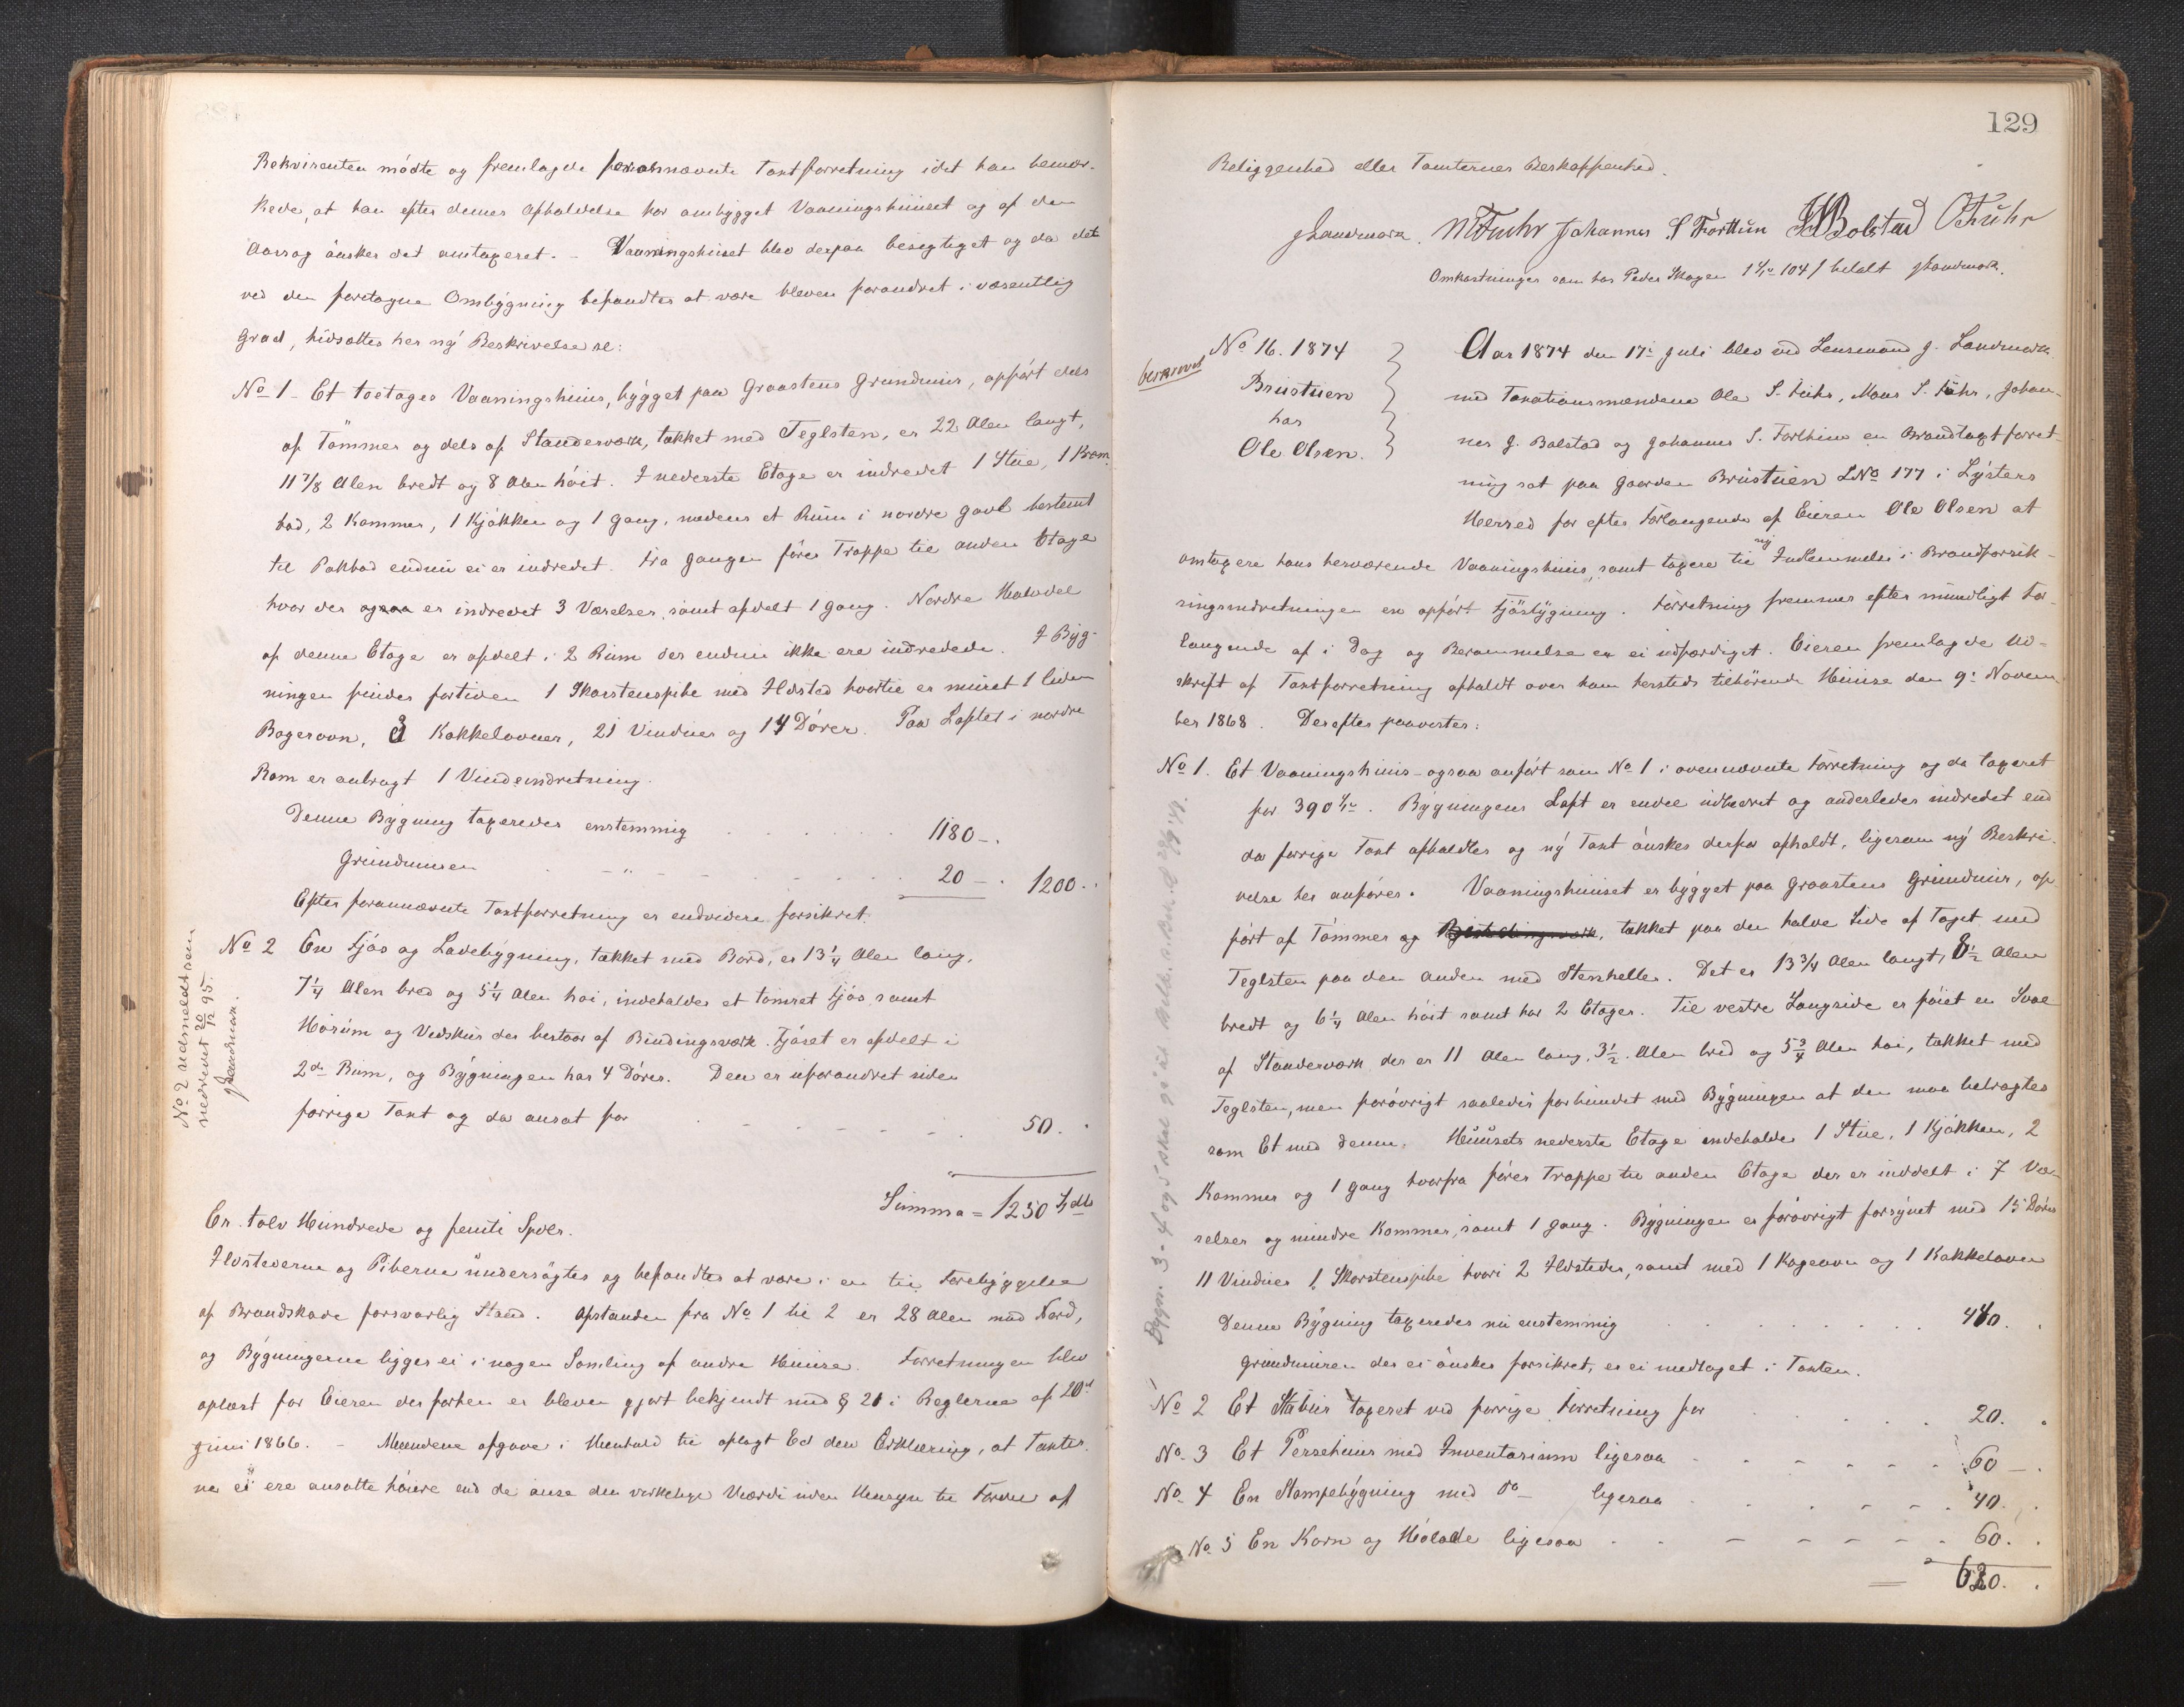 Rekvirenten mødte og fremlagde forannævnte Taxtforretning idet han bemær-
kede, at han efter dennes Afholdelse har ombygget Vaaningshuuset og af den
Aarsag ønsker det omtaxeret. - Vaaningshuset blev derpaa besigtiget og da det
ved den foretagne Ombygning befandtes at være bleven forandret i væsentlig
Grad, hidsættes her ny Beskrivelse sl:
No 1 - Et toetages Vaaningshuus, bygget paa Graastens Grundmuur, opført dels
af Tømmer og dels af Standerværk, tækket med Teglsten, er 22 Alen langt,
11 7/8 Alen bredt og 8 Alen høit. I nederste Etage er indredet 1 Stue, 1 Kram-
bod, 2 Kammer, 1 Kjøkken og 1 Gang, medens et Rum i nordre Gavl bestemt
til Pakbod endnu ei er indredet. Fra Gangen fører Trappe til anden Etage
hvor der ogsaa er indredet 3 Værelser, samt afdelt 1 Gang. Nordre Halvdel
af denne Etage er afdelt i 2 Rum der endnu ikke ere indredede. I Byg-
ningen findes fortiden 1 Skorstenspibe med Ildsted hvortil er muret 1 liden
Bagerovn, 3 Kakkelovner, 21 Vinduer og 14 Dører. Paa Loftet i nordre
Rom er anbragt 1 Vindeindretning.
Denne Bygning taxeredes enstemmig 1180 -.
Grundmuren - " - 20 - . 1200 . .
Efter forannævnte Taxtforretning er endvidere forsikret:
No 2 En Fjøs og Ladebygning, tækket med Bord, er 13 1/4 Alen lang,
7 1/4 Alen bred og 5 1/4 Alen høi, indeholder et tømret Fjøs, samt
Hørum og Vedskur der bestaar af Bindingsværk. Fjøset er afdelt i
2de Rum, og Bygningen har 4 Dører. Den er uforandret siden
forrige Taxt og da ansat for 50 . .
Summa = 1250 Spdlr
Er. tolv Hundrede og femti Spdlr.
Ildstederne og Piberne undersøgtes og befandtes at være i en til Forebyggelse
af Brandskade forsvarlig Stand. Afstanden fra No 1 til 2 er 28 Alen mod Nord,
og Bygningerne ligger ei i nogen Samling af andre Huuse. Forretningen blev
oplæst for Eieren der forhen er bleven gjort bekjendt med § 21 i Reglerne af 20d
Juni 1866. - Mændene afgave i Henhold til aflagt Ed den Erklæring, at Taxter-
ne ei ere ansatte høiere end de anse den virkelige Værdi uden Hensyn til Fordel af
No 2 udmeldt som
nedrevet 20/12 95.
JLandmark.
129
Beliggenhed eller Tomternes Beskaffenhed.
JLandmark. MFuhr Johannes S Forthun JJBolstad OFuhr
Omkostninger som har Peder Skagen 1 Spd 104 s betalt JLandmark.
beskrevet
No 16. 1874
Brustuen
har
Ole Olsen.
Aar 1874 den 17de Juli blev ved Lensmand J. Landmark
med Taxationsmændene Ole S. Fuhr, Mons S. Fuhr, Johan-
nes J. Bolstad og Johannes S. Forthun en Brandtaxtforret-
ning sat paa Gaarden Brustuen LNo 177 i Lysters
Herred for efter Forlangende af Eieren Ole Olsen at
omtaxere hans herværende Vaaningshuus, samt taxere til ny Indlemmelse i Brandforsik-
ringsindretningen en opført Fjøsbygning. Forretning fremmes efter mundligt For-
langende af i Dag og Berammelse er ei udfærdiget. Eieren fremlagde Ud-
skrift af Taxtforretning afholdt over ham hersteds tilhørende Huuse den 9de Novem-
ber 1868. Derefter paavistes:
No 1. Et Vaaningshuus - ogsaa anført som No 1 i ovennævnte Forretning og da taxeret
for 390 Spd. Bygningens Loft er endel udbedret og anderledes indredet end
da forrige Taxt afholdtes og ny Taxt ønskes derfor afholdt, ligesom ny Beskri-
velse her anføres. Vaaningshuuset er bygget paa Graastens Grundmuur, op-
ført af Tømmer og tækket paa den halve Side af Taget med
Teglsten paa den anden med Stenheller. Det er 13 3/4 Alen langt, 8 1/2 Alen
bredt og 6 1/4 Alen høit samt har 2 Etager. Til vestre Langside er føiet en Sval
af Standerværk der er 11 Alen lang, 3 1/2 Alen bred og 5 3/4 Alen høi, tækket med
Teglsten, men forøvrigt saaledes forbundet med Bygningen at den maa betragtes
som Et med denne. Huusets nederste Etage indeholder 1 Stue, 1 Kjøkken, 2
Kammer og 1 Gang hvorfra fører Trappe til anden Etage der er inddelt i 7 Væ-
relser og mindre Kammer, samt 1 Gang. Bygningen er forøvrigt forsynet med 15 Dører
11 Vinduer 1 Skorstenspibe hvori 2 Ildsteder, samt med 1 Kogeovn og 1 Kakkelovn
Denne Bygning taxeredes nu enstemmig 440 . .
Grundmuren der ei ønskes forsikret, er ei medtaget i Taxten.
No 2 Et Stabur taxeret ved forrige Forretning for 20 . .
No 3 Et Persehuus med Inventarium ligesaa 60 - .
No 4 En Stampebygning med do ligesaa 40 . .
No 5 En Korn og Hølade ligesaa 60 . .
= 620 . .
Bygn. 3 - 4 og 5 skal